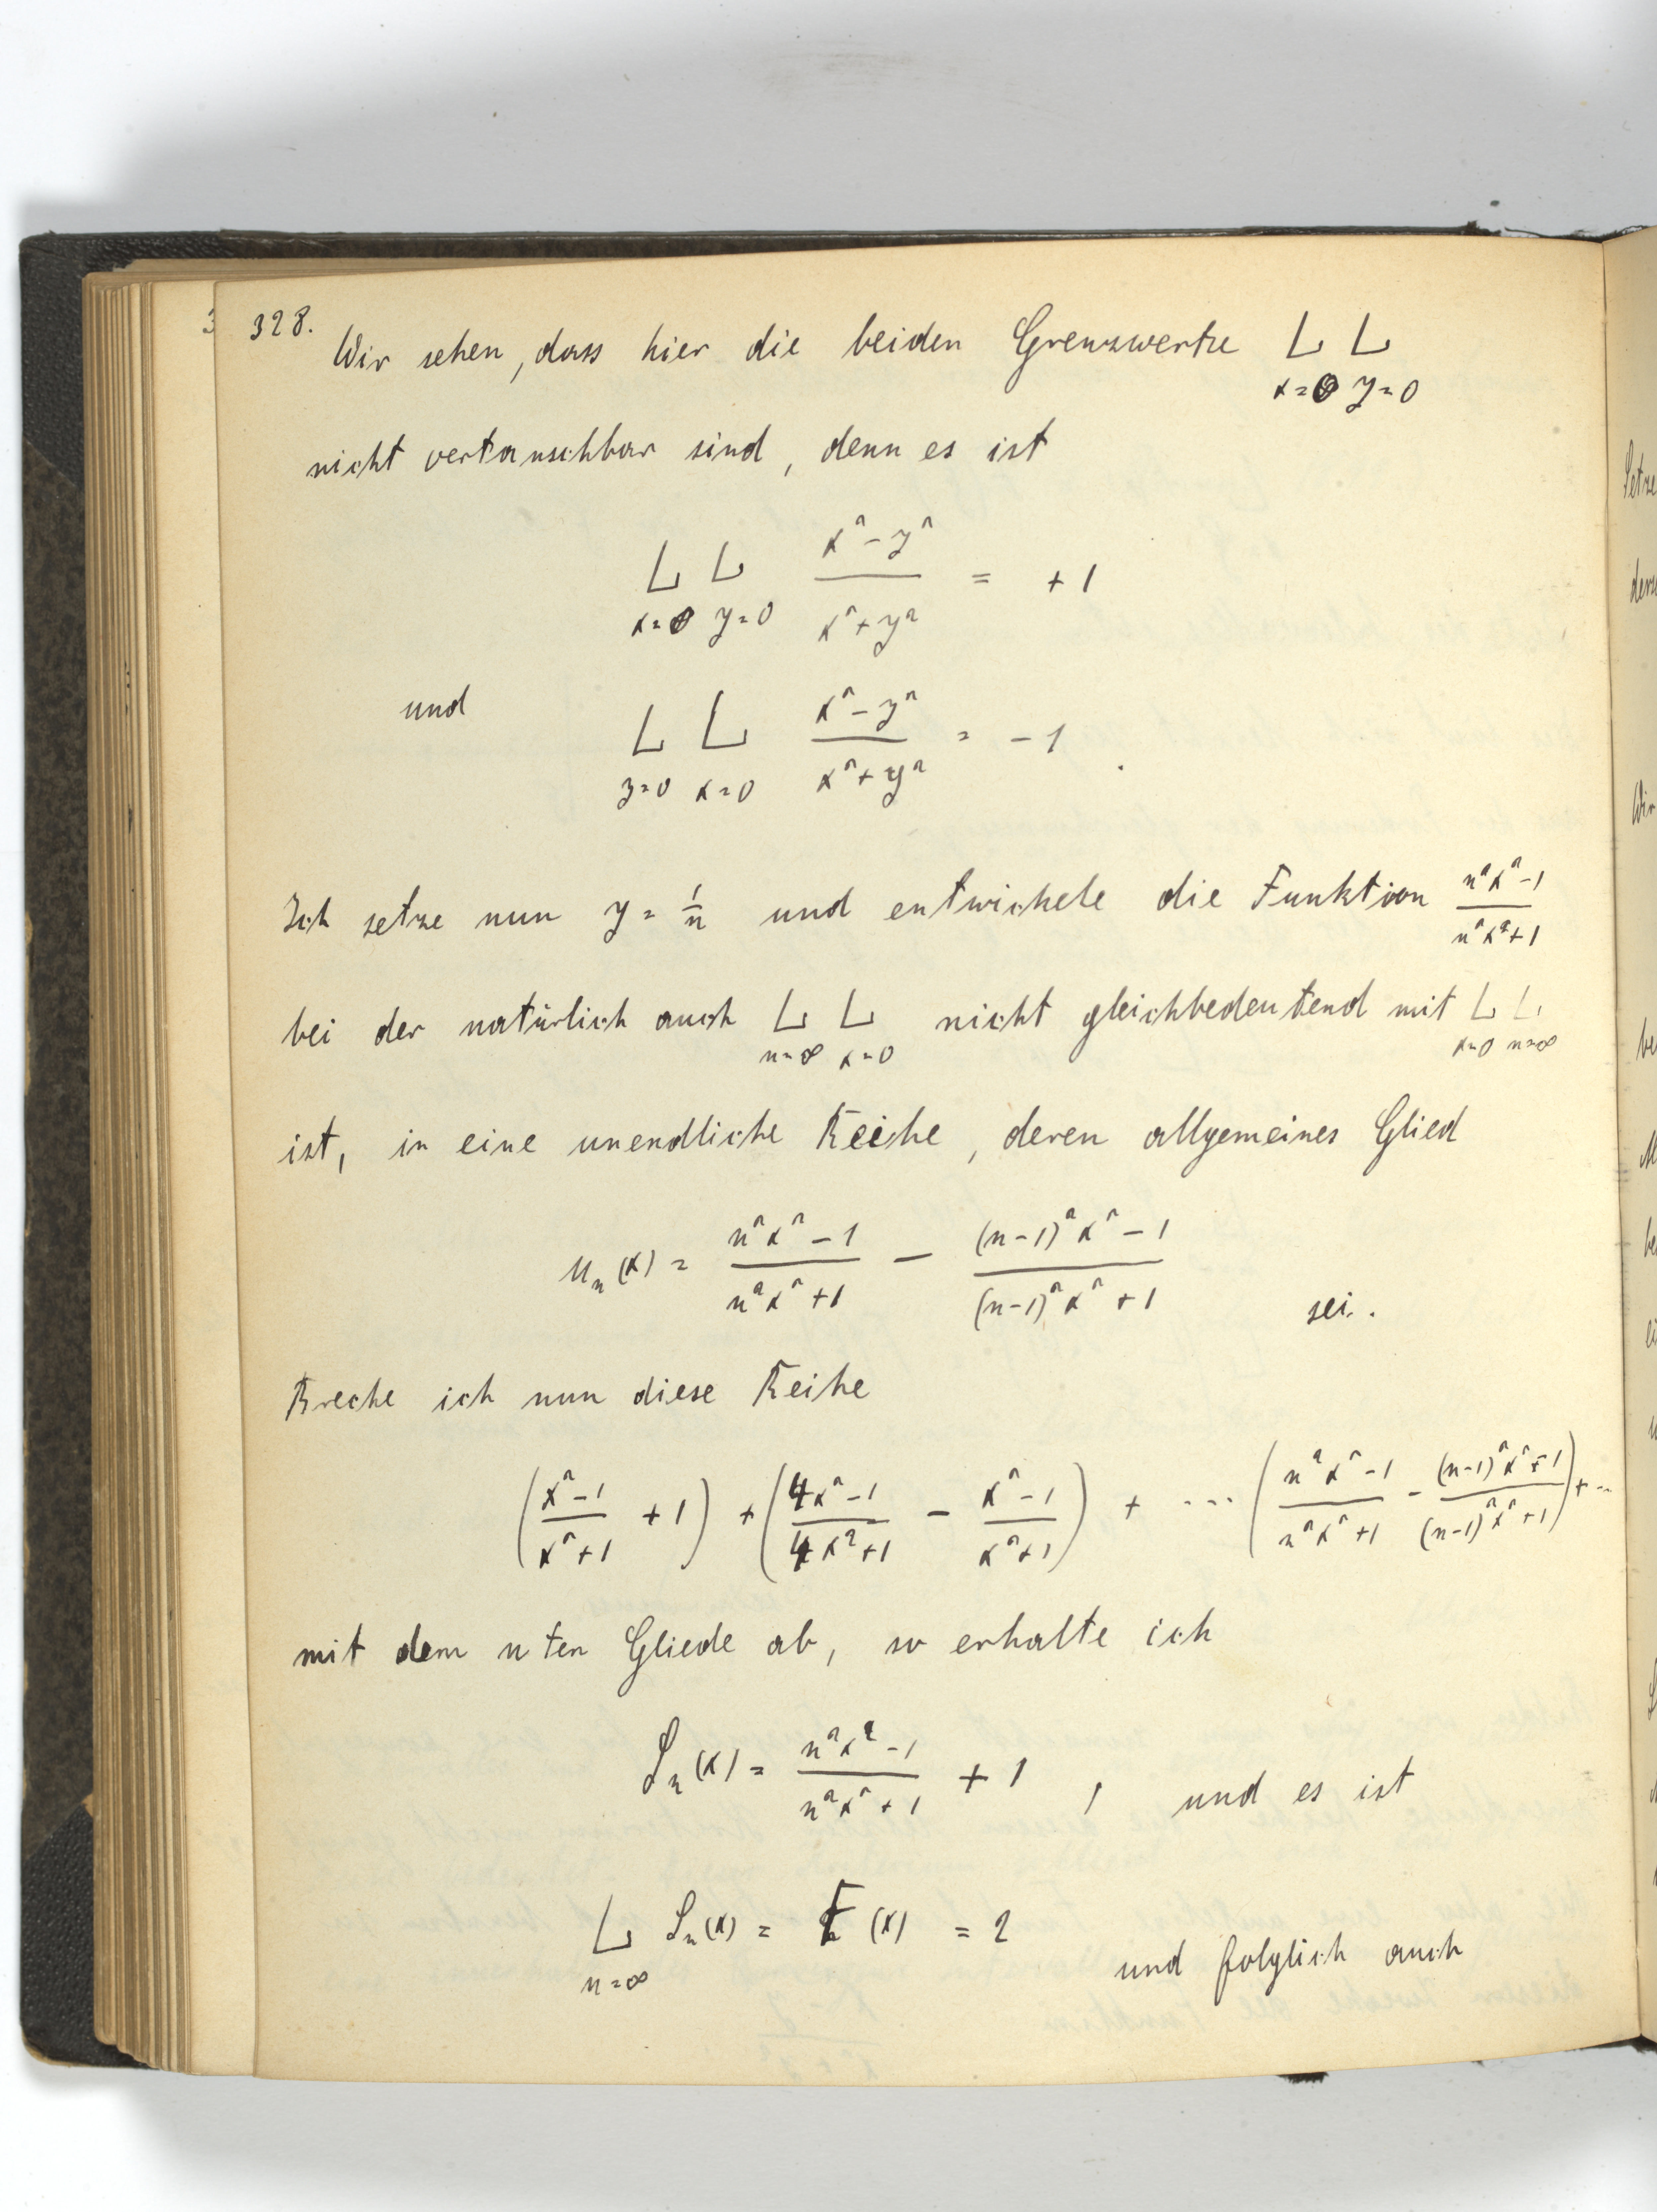 328.
Wir sehen, dass hier die beiden Grenzwerte L_{x=0} L_{y=0}
nicht vertauschbar sind, denn es ist
L_{x=0} L_{y=0} \frac{x^2-y^2}{x^2+y^2} = +1
und L_{y=0} L_{x=0} \frac{x^2-y^2}{x^2+y^2} = -1.
Ich setze nun y = \frac{1}{n} und entwickele die Funktion \frac{n^2x^2-1}{n^2x^2+1}
bei der natürlich auch L_{n=∞} L_{x=0} nicht gleichbedeutend mit L_{x=0} L_{n=∞}
ist, in eine unendliche Reihe, deren allgemeines Glied
u_n(x) = \frac{n^2x^2-1}{n^2x^2+1} - \frac{(n-1)^2x^2-1}{(n-1)^2x^2+1} sei.
Breche ich nun diese Reihe
(\frac{x^2-1}{x^2+1} + 1) + (\frac{4x^2-1}{4x^2+1} - \frac{x^2-1}{x^2+1}) + --- (\frac{n^2x^2-1}{n^2x^2+1} - \frac{(n-1)^2x^2+1}{(n-1)^2x^2+1}) + --
mit dem nten Gliede ab, so erhalte ich
S_n(x) = \frac{n^2x^2-1}{n^2x^2+1} + 1, und es ist
L_{n=∞} S_n(x) = F(x) = 2 und folglich auch
Setze
Wir